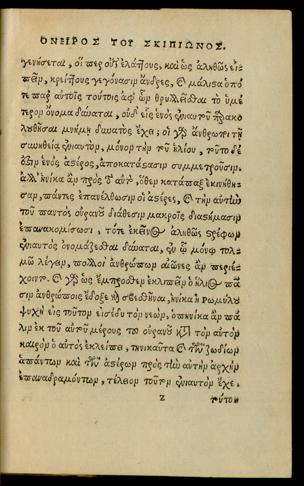 ΟΝΕΙΡΟΣ ΤΟΥ ΣΚΙΠΙΩΝΟΣ.
γενήσεται, οἵ περ οὐκ ἐλάττους, καὶ ὡς ἀληθῶς εἰ-
πεῖν, κρείττους γεγόνασιν ἄνδρες, καὶ μάλιστα ὁπό
τε παρ' αὐτοῖς τούτοις ἀφ' ὧν θρυλλεῖσθαι τὸ ὑμέ
τερον ὄνομα δύναται, οὐδ' εἰς ἑνὸς ἐνιαυτοῦ παρακο
λουθῆσαι μνήμη δυνατὸς ἔχει; οἱ γὰρ ἄνθρωποι τῇ
συνηθείᾳ ἐνιαυτὸν, μόνον τὴν τοῦ ἡλίου, τοῦτο δέ
ἐστιν ἑνὸς ἀστέρος, ἀποκατάστασιν συμμετροῦσιν.
ἀλλ' ἡνίκα ἂν πρὸς τὸ αὐτὸ, ὅθεν κατάπαξ ἐκινήθη-
σαν, πάντες ἐπανέλθωσιν οἱ ἀστέρες, καὶ τὴν αὐτὴν
τοῦ παντὸς οὐρανοῦ διάθεσιν μακροῖς διαστήμασιν
ἐπανακομίσωσι, τότε ἐκεῖνος ἀληθῶς στρέφων
ἐνιαυτὸς ὀνομάζεσθαι δύναται, ἐν ᾧ μόνῳ τολ-
μῶ λέγειν, πολλοὶ ἀνθρώπων αἰῶνες ἂν περιέ-
χοιντο. καὶ γὰρ ὡς ἔμπροσθεν ἐκλιπεῖν ὁ ἥλιος πᾶ
σιν ἀνθρώποις ἔδοξε καὶ σβεσθῆναι, ἡνίκα ἡ Ῥωμύλου
ψυχὴ εἰς τοῦτον εἰσέδυ τὸν νεών, ὁπηνίκα ἂν πά
λιν ἐκ τοῦ αὐτοῦ μέρους τοῦ οὐρανοῦ καὶ τὸν αὐτὸν
καιρὸν ὁ αὐτὸς ἐκλείπῃ, τηνικαῦτα καὶ τῶν ζωδίων
ἁπάντων καὶ τῶν ἀστέρων πρὸς τὴν αὐτὴν ἀρχὴν
ἐπαναδραμόντων, τέλεον τοῦτον ἐνιαυτὸν ἔχε.
z τούτου